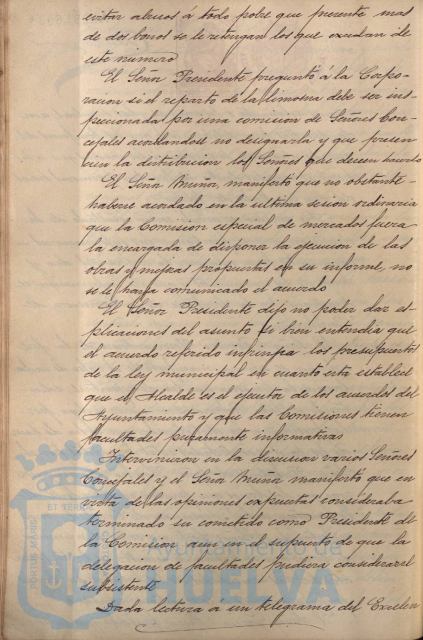 evitar abusos á todo pobre que presente mas
de dos bonos se le retengan los que excedan de
este número
El Señor Presidente preguntó á la Corpo-
racion si el reparto de la limosna debe ser ins-
peccionada por una comision de Señores Con-
cejales acordandose no designarla y que presen
cien la distribucion los Señores que deseen hacerlo
El Señor Muñoz, manifestó que no obstante
haberse acordado en la ultima sesion ordinaria
que la Comision especial de mercados fuera
la encargada de disponer la ejecucion de las
obras y mejoras propuestas en su informe, no
se le habia comunicado el acuerdo
El Señor Presidente dijo no poder dar es-
plicaciones del asunto si bien entendia que
el acuerdo referido infringia los presupuestos
de la ley municipal en cuanto esta establece
que el Alcalde es el ejecutor de los acuerdos del
Ayuntamiento y que las Comisiones tienen
facultades puramente informativas
Intervinieron en la discusion varios Señores
Concejales y el Señor Muñoz manifestó que en
vista de las opiniones expuestas consideraba
terminado su cometido como Presidente de
la Comision aun en el supuesto de que la
delegacion de facultades pudiera considerarse
subsistente
Dada lectura á un telegrama del Excelen
Ayuntamiento de
HUELVA
PORTUS MARIS
ET TERRAE